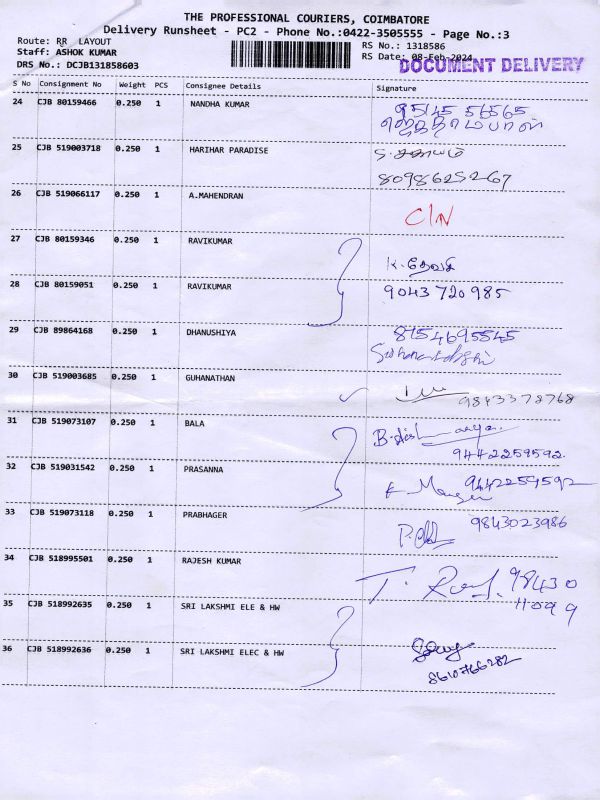 THE PROFESSIONAL COURIERS, COIMBATORE
Delivery Runsheet - PC2 - Phone No.:0422-3505555 - Page No.:3
Route: RR LAYOUT
RS No.: 1318586
Staff: ASHOK KUMAR
RS Date: 08-Feb-2024
DRS No.: DCJB131858603
DOCUMENT DELIVERY
S No Consignment No Weight PCS Consignee Details Signature
24 CJB 80159466 0.250 1 NANDHA KUMAR
95145 56565
25 CJB 519003718 0.250 1 HARIHAR PARADISE
8098625267
26 CJB 519066117 0.250 1 A.MAHENDRAN
C/N
27 CJB 80159346 0.250 1 RAVIKUMAR
K. தேவி
28 CJB 80159051 0.250 1 RAVIKUMAR
9043 720 985
29 CJB 89864168 0.250 1 DHANUSHIYA
8754695545
30 CJB 519003685 0.250 1 GUHANATHAN
9843378768
31 CJB 519073107 0.250 1 BALA
9442259592
32 CJB 519031542 0.250 1 PRASANNA
9442259592
33 CJB 519073118 0.250 1 PRABHAGER
9843023986
34 CJB 518995501 0.250 1 RAJESH KUMAR
98430
11099
35 CJB 518992635 0.250 1 SRI LAKSHMI ELE & HW
36 CJB 518992636 0.250 1 SRI LAKSHMI ELEC & HW
8610766282